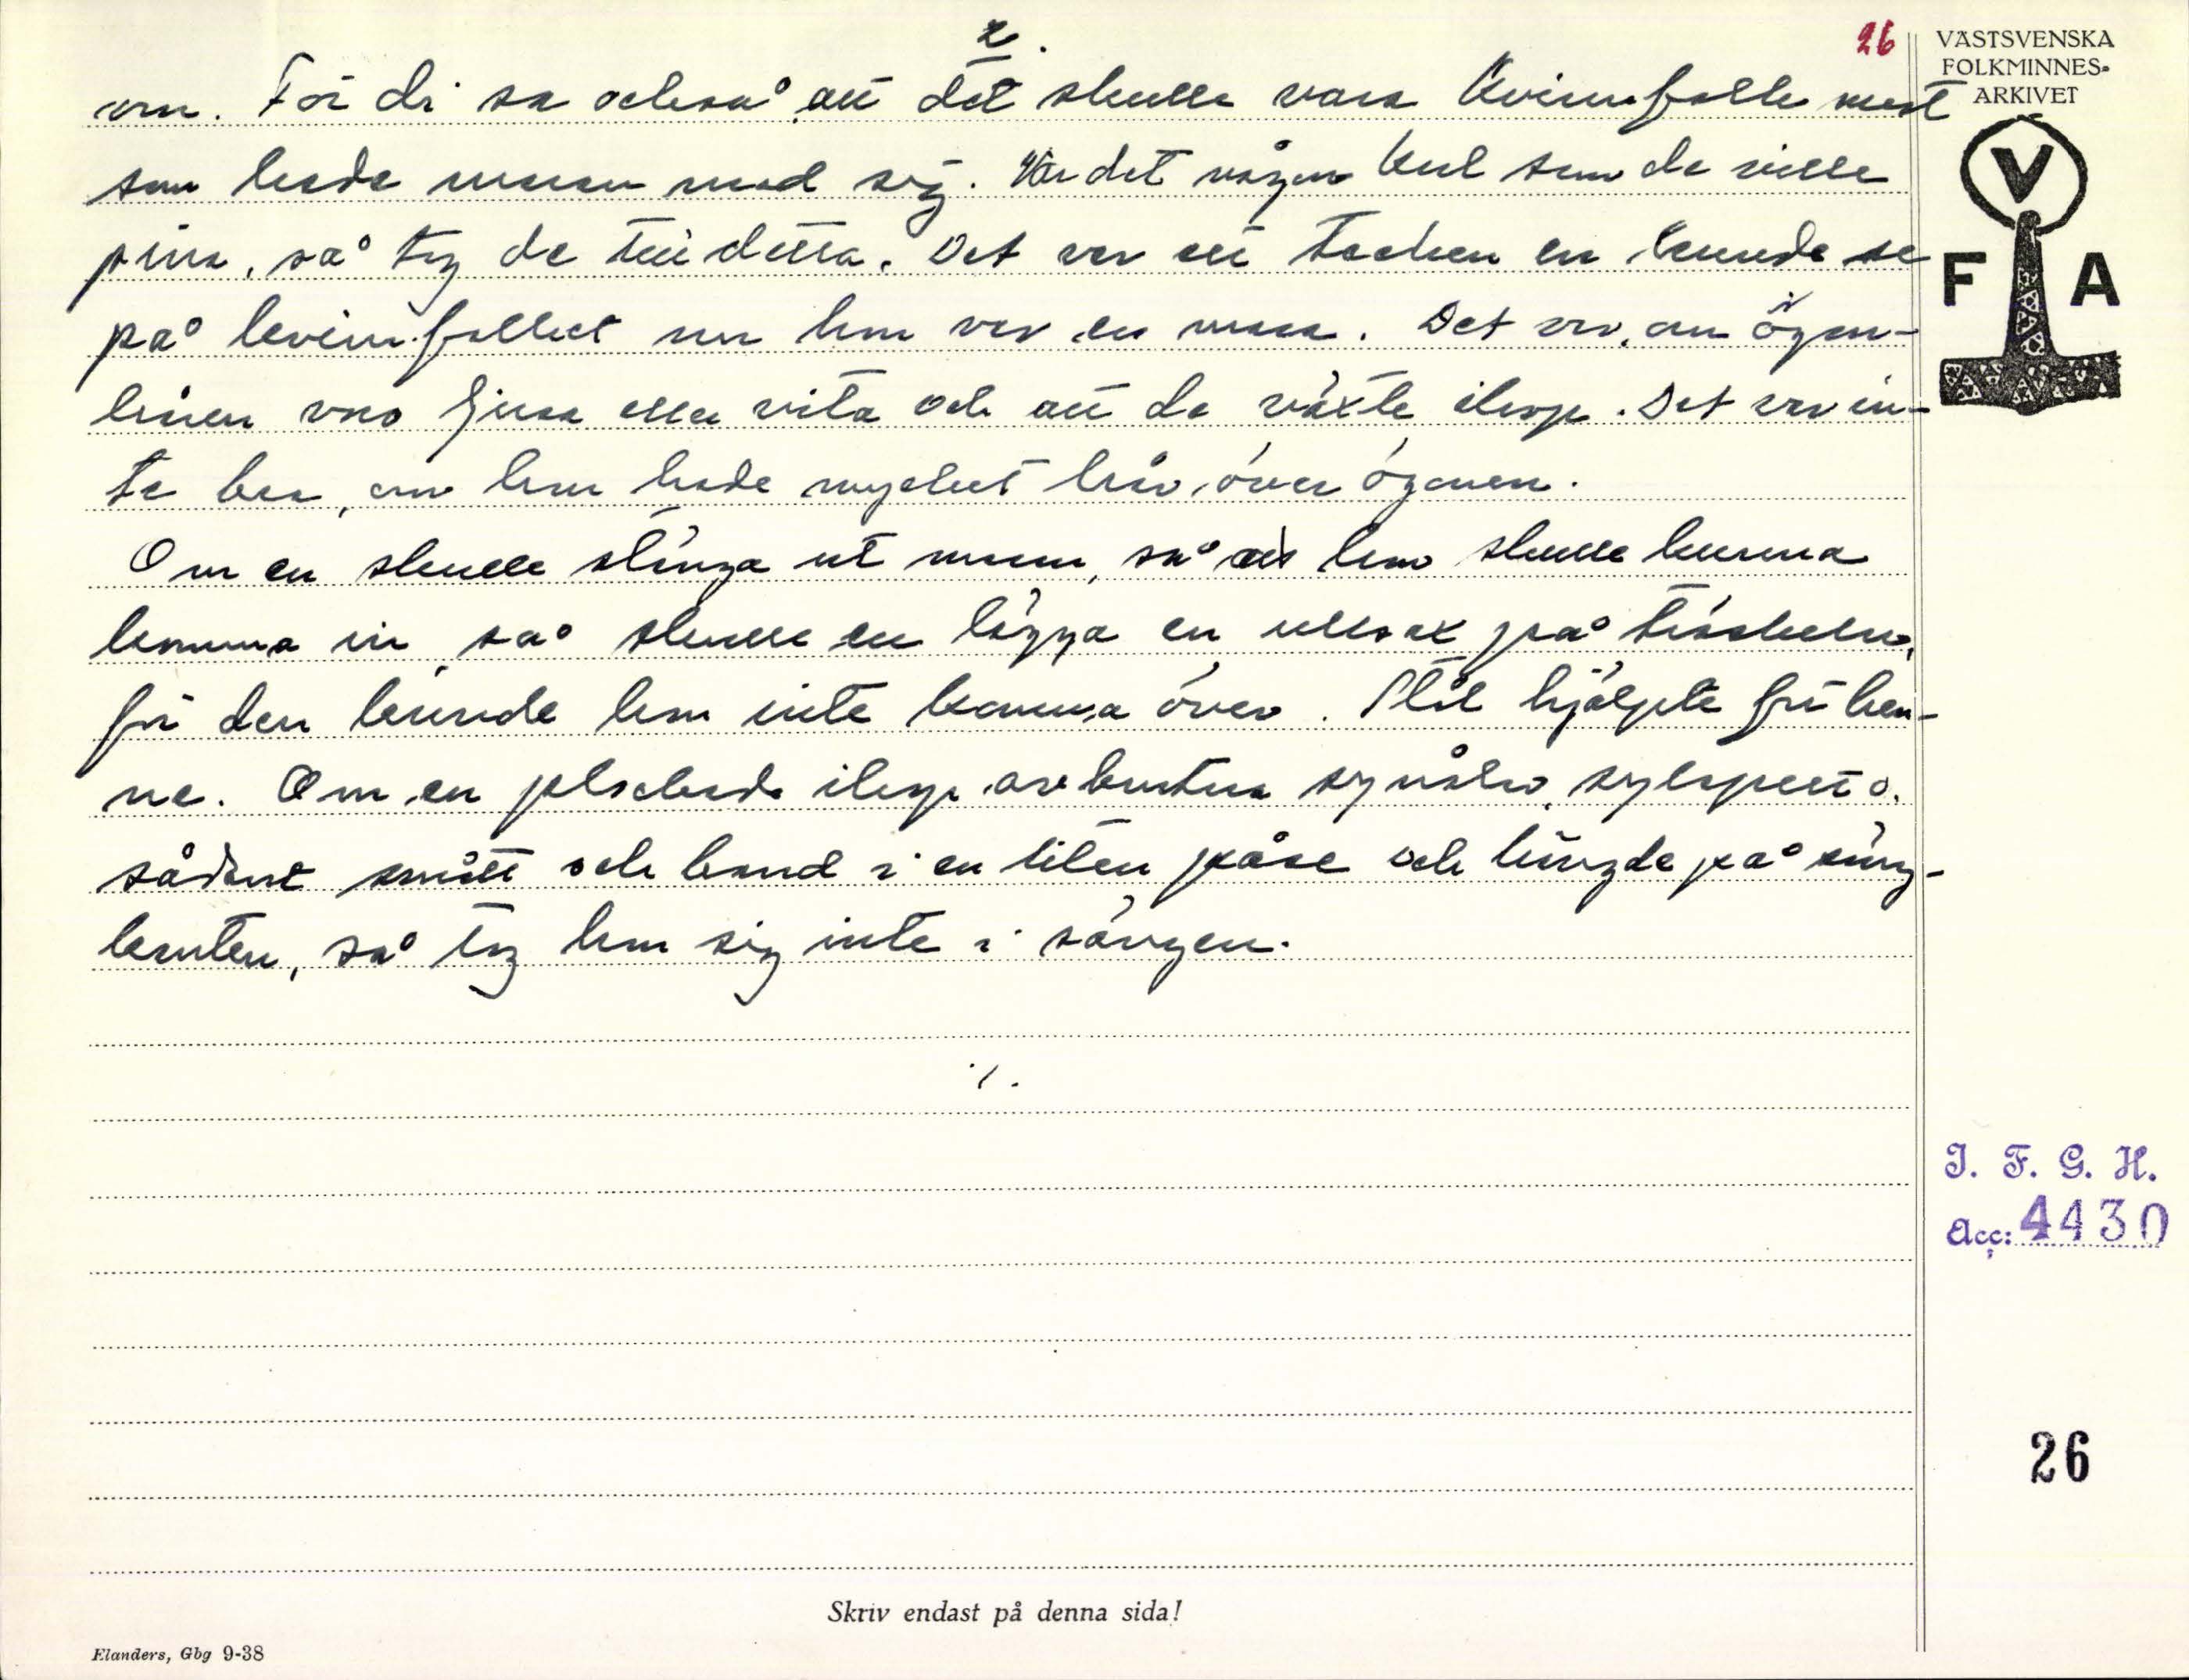 2.
26
VÄSTSVENSKA
FOLKMINNES-
ARKIVET
om. För di sa också att det skulle vara kvinnfolk mest
som hade maran med sig. Var det någon karl som de ville
pina, så tog de till detta. Det var ett tecken en kunde se
på kvinnfolket når hon var en mara. Det var, om ögon-
håren voro ljusa eller vita och att de växte ihop. Det var in-
te bra, om hon hade mycket hår över ögonen.
Om en skulle stänga ut maran, så att hon skulle kunna
komma in, så skulle en lägga en ullsax på tröskeln,
för den kunde hon inte komma över. Stål hjälpte för hen-
ne. Om en plockade ihop avbrutna synålar, sylspett o.
sådant smått och band i en liten påse och hängde på säng-
kanten, så tog hon sig inte i sängen.
./.
V
F A
I. F. G. H.
Acc: 4430
26
Skriv endast på denna sida!
Elanders, Gbg 9-38